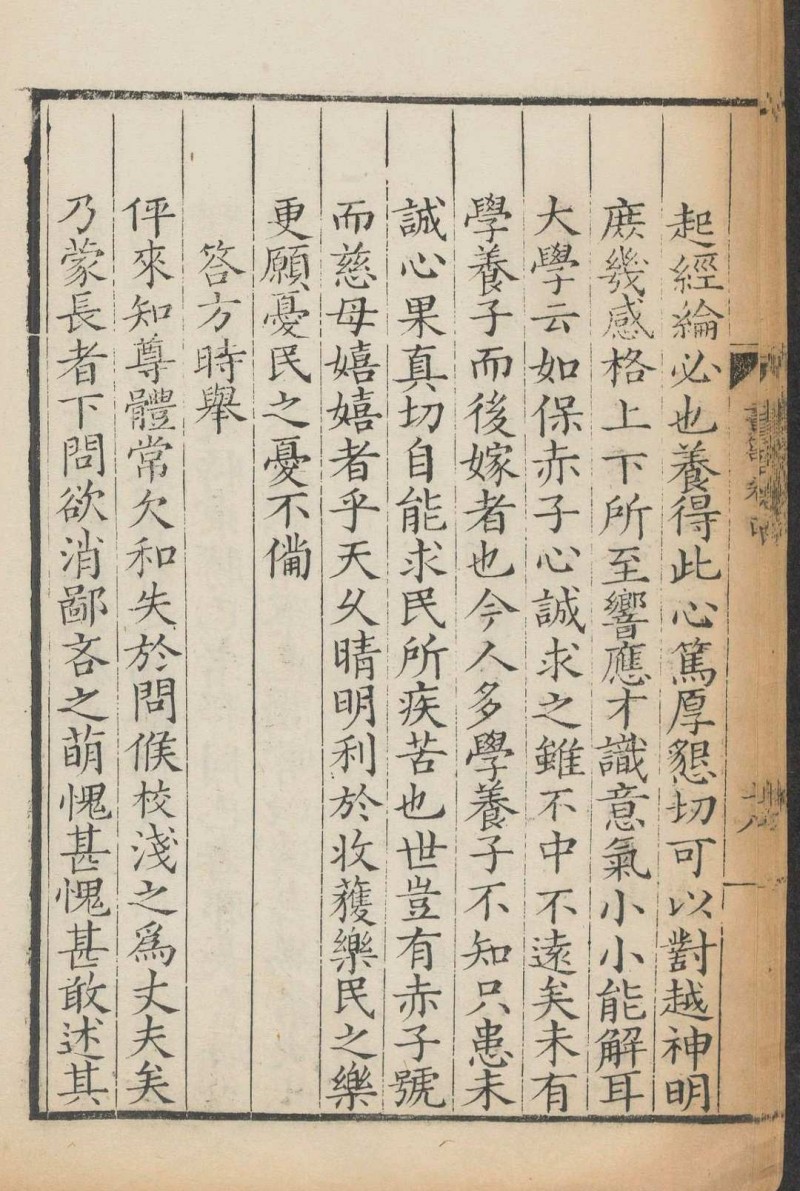 起經綸必也養得此心篤厚懇切可以對越神明
庻幾感格上下所至響應才識意氣小小能解耳
大學云如保赤子心誠求之雖不中不遠矣未有
學養子而後嫁者也今人多學養子不知只患未
誠心果真切自能求民所疾苦也世豈有赤子號
而慈母嬉嬉者乎天久晴明利於收穫樂民之樂
更願憂民之憂不備
答方時舉
伻來知尊體常欠和失於問候校淺之爲丈夫矣
乃蒙長者下問欲消鄙吝之萌愧甚愧甚敢述其